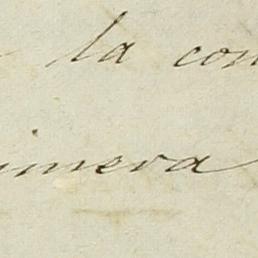 la con
imera